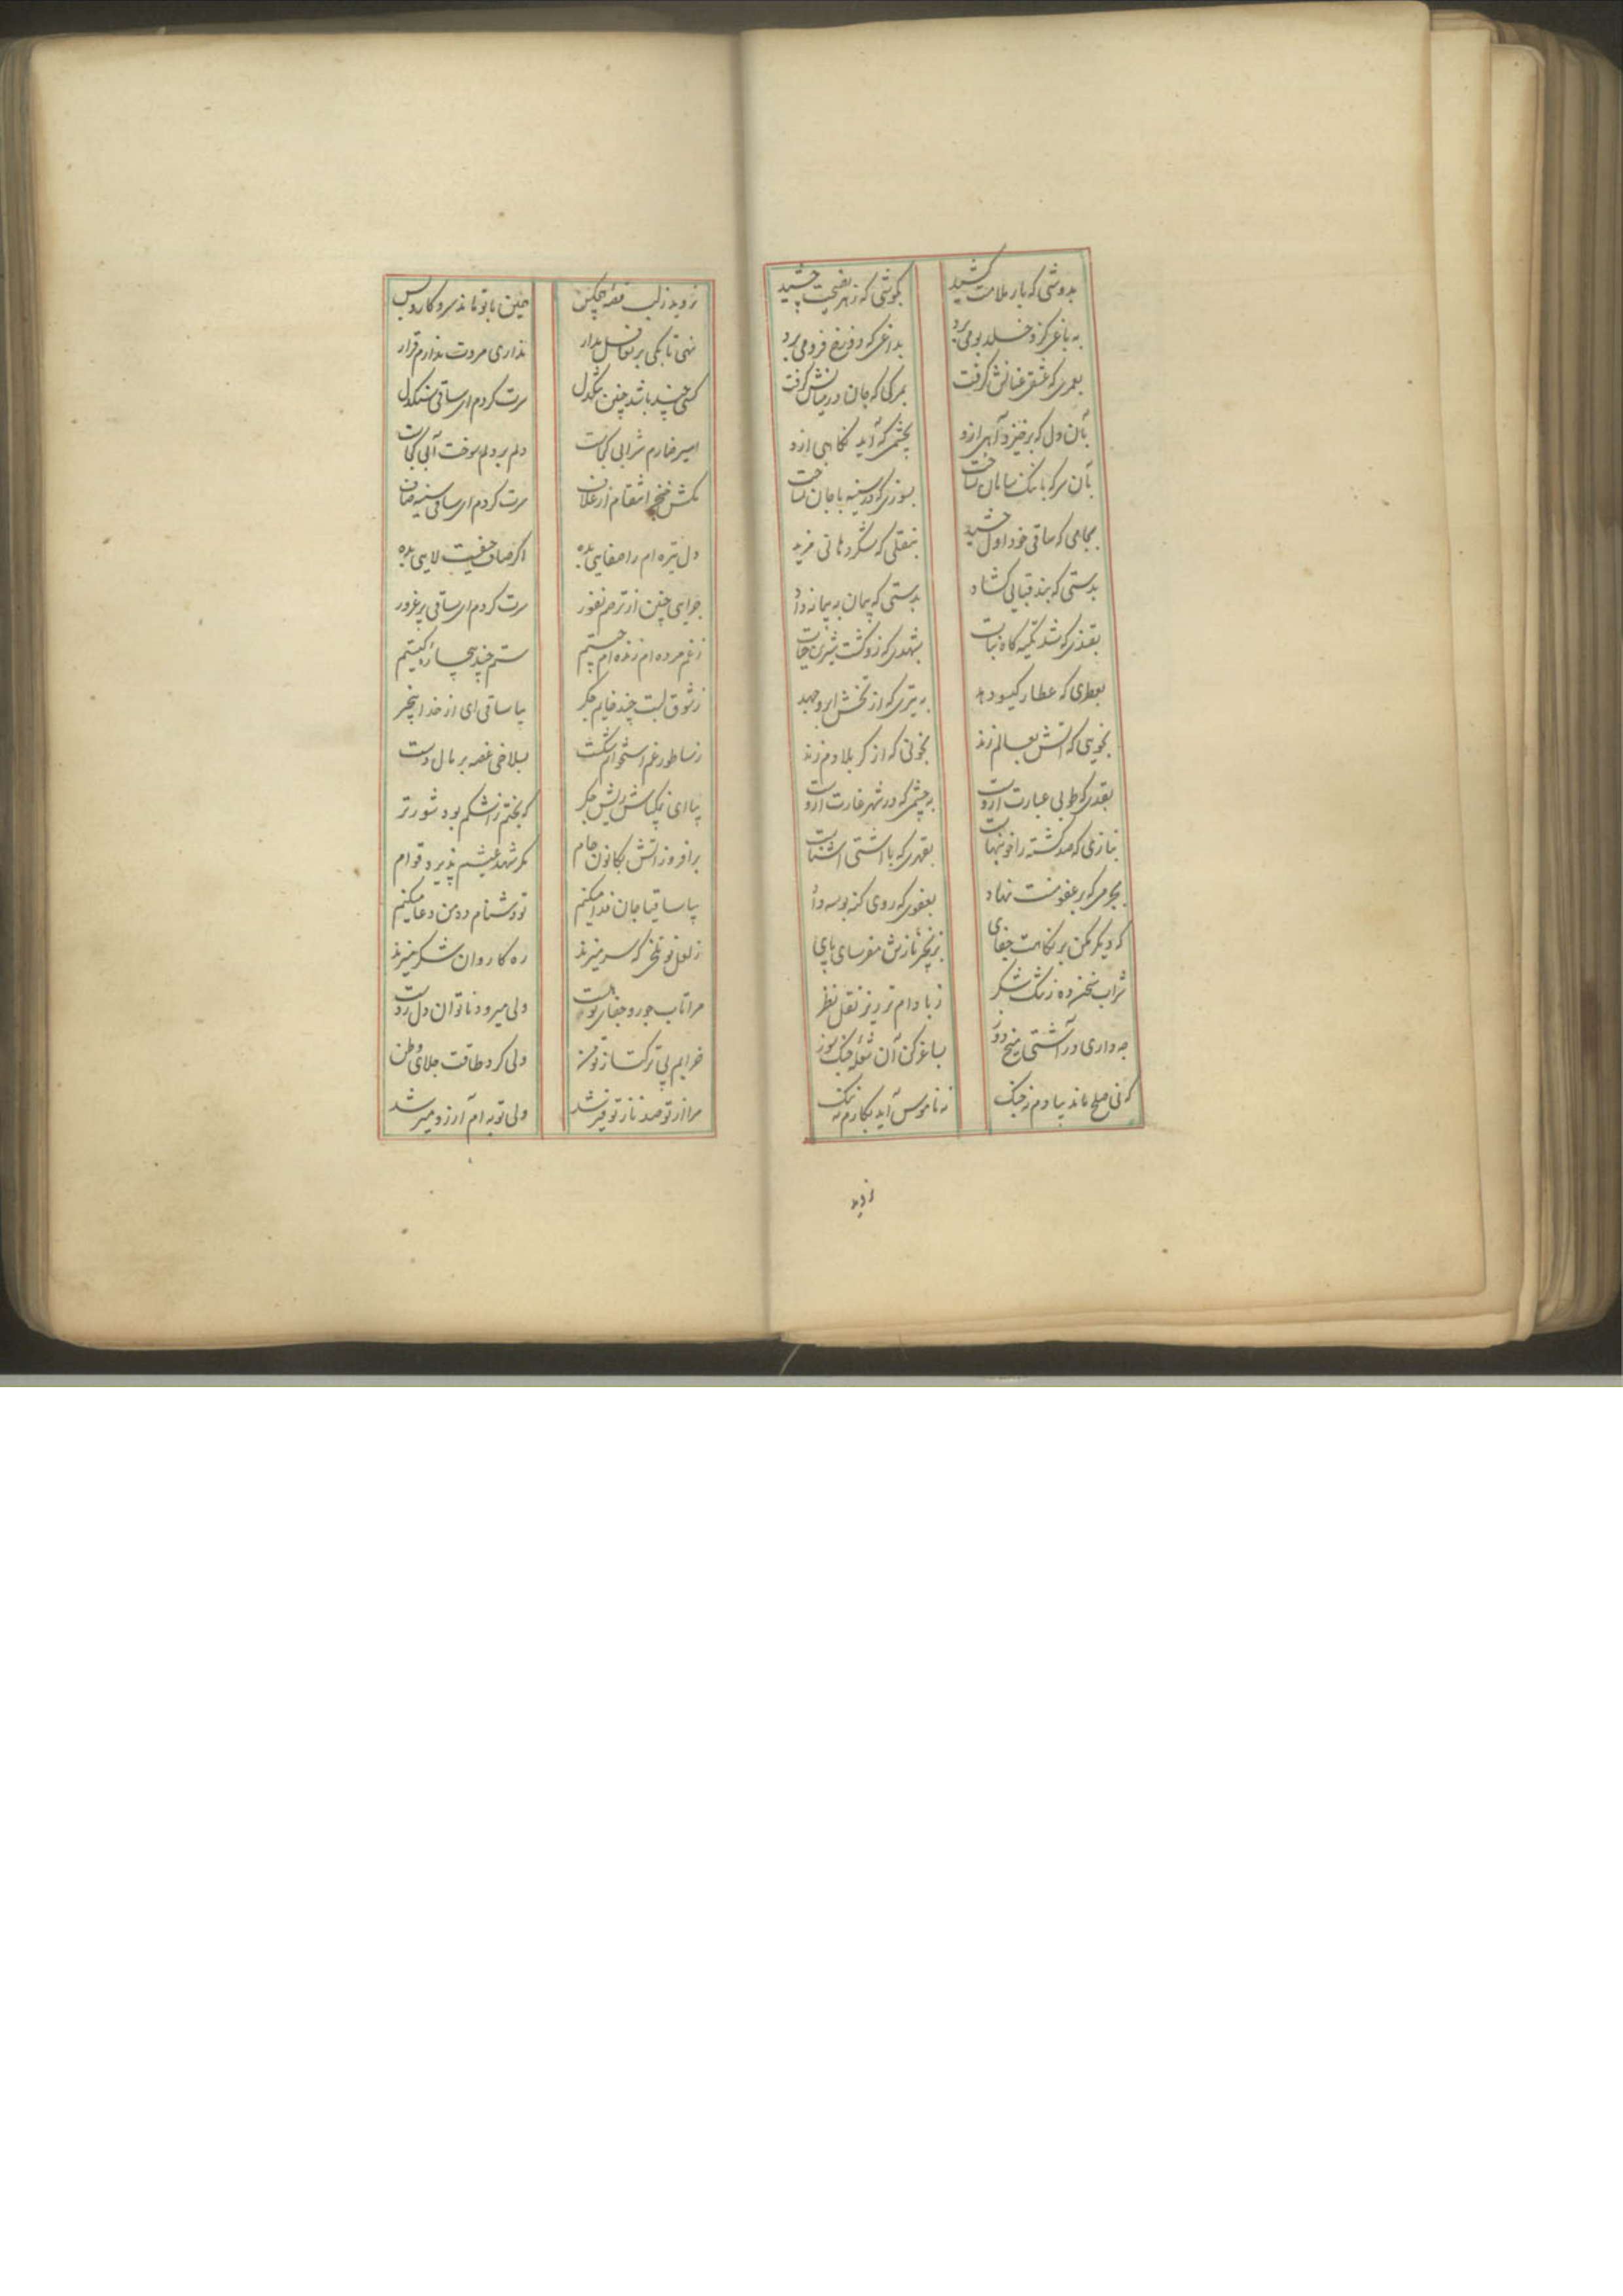 بدوشی که بار ملامت کشید بگوشی که زهر نصیحت چشید
به باغی کزو خلد بو می‌برد بداغی که دوزخ فرو می‌برد
بعمری که عشقش عنانش گرفت بمرگی که جان در میانش گرفت
بآن دل که برخیزد آهی ازو بچشمی که آید نگاهی ازو
بآن سر که با سنگ سامان بساخت بسوزی که در سینه با جان بساخت
بجامی که ساقی خود اول چشید بنقلی که شکر دهانی مزید
بدستی که بند قبایی گشاد بدستی که پیمان به پیمانه داد
بقندی که شد تکیه گاه نبات بشهدی که زو گشت شیرین حیات
بعطری که عطار گیسو دهد به تیری که از تخش ابرو جهد
بخویی که آتش بعالم زند بخونی که از کربلا دم زند
بقدی که طوبی عبارت ازوست به چشمی که در شهر غارت ازوست
بنازی که صد کشته را خونبهاست بقهری که با آشتی آشناست
بجرمی که بر عفو منت نهاد بعفوی که روی گنه بوسه داد
که دیگر مکن بر نکاهت جفای بزنجیر نازش مفرسای پای
شراب بخنده ز تنگ شکر ز بادام تر ریز نقل نظر
چه داری در آشتی میخ دوز بساغر کن آن شعله جنگ سوز
که نی صلح ماند بیادم نه جنگ نه ناموس آید بکارم نه ننگ
نروید
نروید ز لب قفه چکس چنین با تو ماند سر و کار و بس
نهی تا بکی بر تغافل مدار نداری مروت ندارم قرار
کسی چند باشد چنین تنگدل سرت گردم ای ساقی سنگدل
اسیر خمارم شرابی کجاست دلم بر دلم سوخت آبی کجاست
بکش خنجر انتقام از غلاف سرت گردم ای ساقی سینه صاف
دل تیره‌ام را صفایی بده اگر صاف حیفست لایی بده
چرایی چنین از ترحم نفور سرت گردم ای ساقی پر غرور
ز غم مرده‌ام زنده‌ام چیستم ستم چند بیچاره کیستم
ز شوق لبت چند خایم جگر بیا ساقی ای از خدا بیخبر
ز ساطور غم استخوانم شکست بسلاخی غصه بر مال دست
بیا ای نمکپاش ریش جگر که بختم ز اشکم بود شورتر
برافروز آتش بکانون جام مگر شهد عیشم پذیرد قوام
بیا ساقیا جان فدا میکنم تو دشنام ده من دعا میکنم
ز لعل تو تلخی که سر میزند ره کاروان شکر میزند
مرا تاب جور و جفای تو هست ولی میرود ناتوان دل ز دست
خرابم پی ترکتاز تو من ولی کرد طاقت جلای وطن
مرا از تو صد ناز توفیر شد ولی توبه‌ام آرزو میر شد